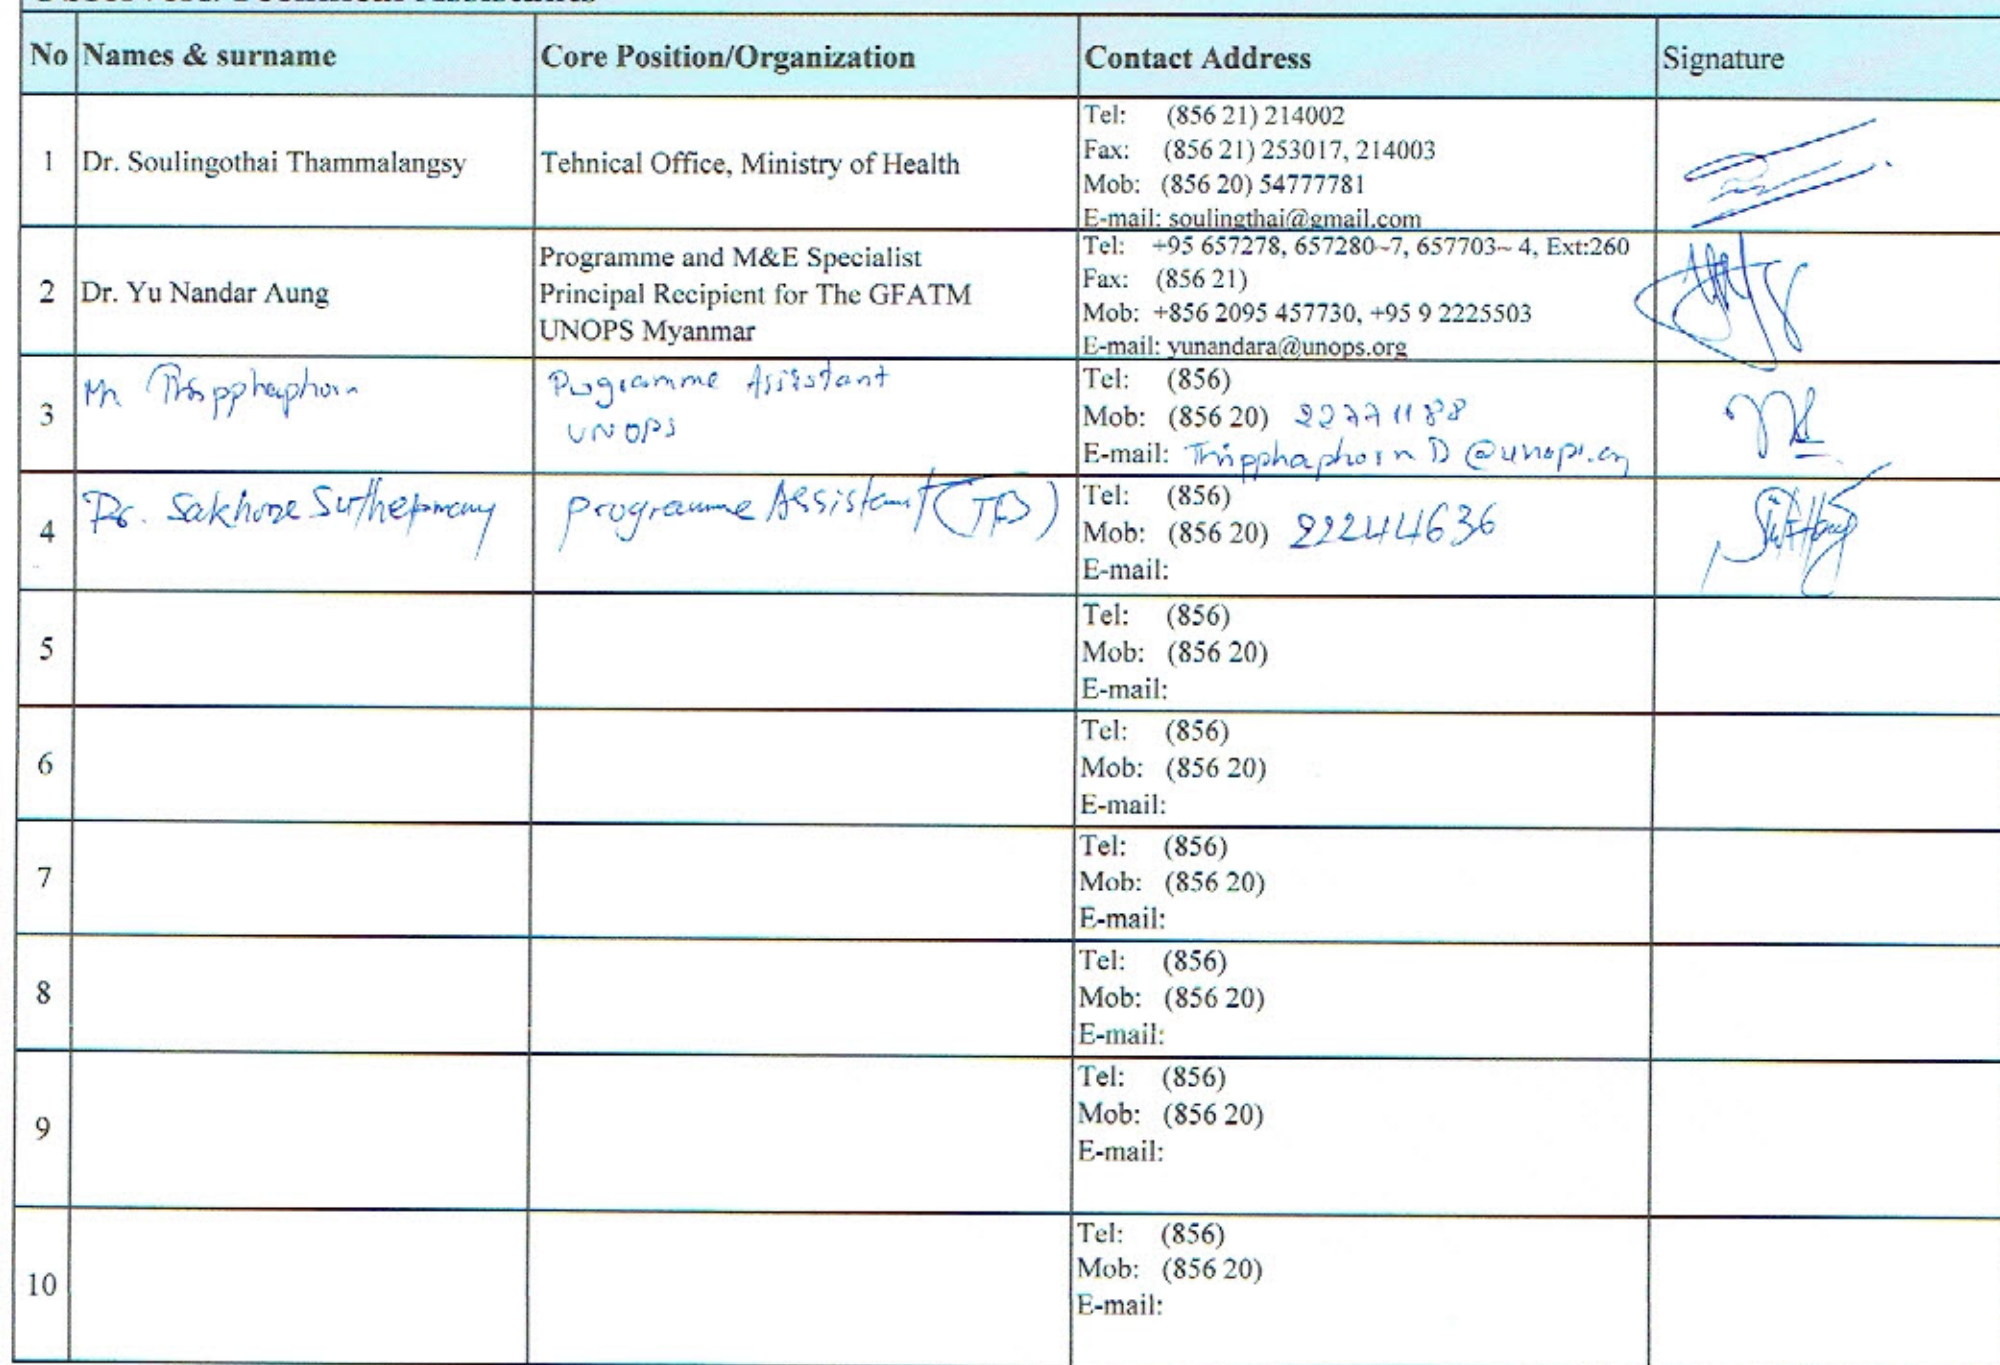 No Names & surname Core Position/Organization Contact Address Signature
1 Dr. Soulingothai Thammalangsy Tehnical Office, Ministry of Health
Tel: (856 21) 214002
Fax: (856 21) 253017, 214003
Mob: (856 20) 54777781
E-mail: soulingthai@gmail.com
2 Dr. Yu Nandar Aung
Programme and M&E Specialist
Principal Recipient for The GFATM
UNOPS Myanmar
Tel: +95 657278, 657280~7, 657703~ 4, Ext:260
Fax: (856 21)
Mob: +856 2095 457730, +95 9 2225503
E-mail: yunandara@unops.org
3
Programme Assistant
UNOPS
Tel: (856)
Mob: (856 20)
E-mail: Thipphaphorn D @unops.org
4 Dr. Sakhone Suthepmany programme Assistant (TB)
Tel: (856)
Mob: (856 20) 22244636
E-mail:
5
Tel: (856)
Mob: (856 20)
E-mail:
6
Tel: (856)
Mob: (856 20)
E-mail:
7
Tel: (856)
Mob: (856 20)
E-mail:
8
Tel: (856)
Mob: (856 20)
E-mail:
9
Tel: (856)
Mob: (856 20)
E-mail:
10
Tel: (856)
Mob: (856 20)
E-mail: